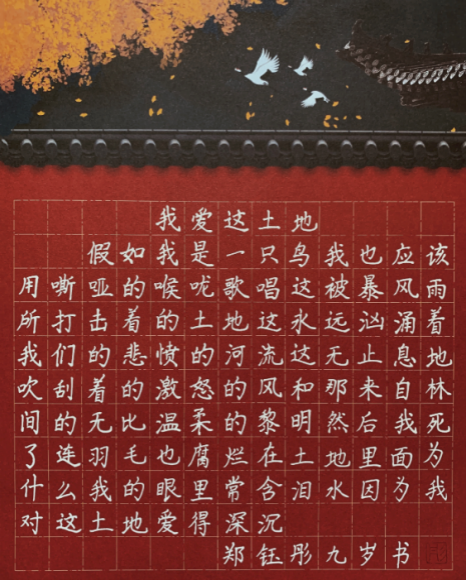 我爱这土地
假如我是一只鸟我也应该
用嘶哑的喉咙歌唱这被暴风雨
所打击着的土地这永远汹涌着
我们的悲愤的河流这无止息地
吹刮着的激怒的风和那来自林
间的无比温柔的黎明然后我死
了连羽毛也腐烂在土地里面为
什么我的眼里常含泪水因为我
对这土地爱得深沉
郑钰彤九岁书